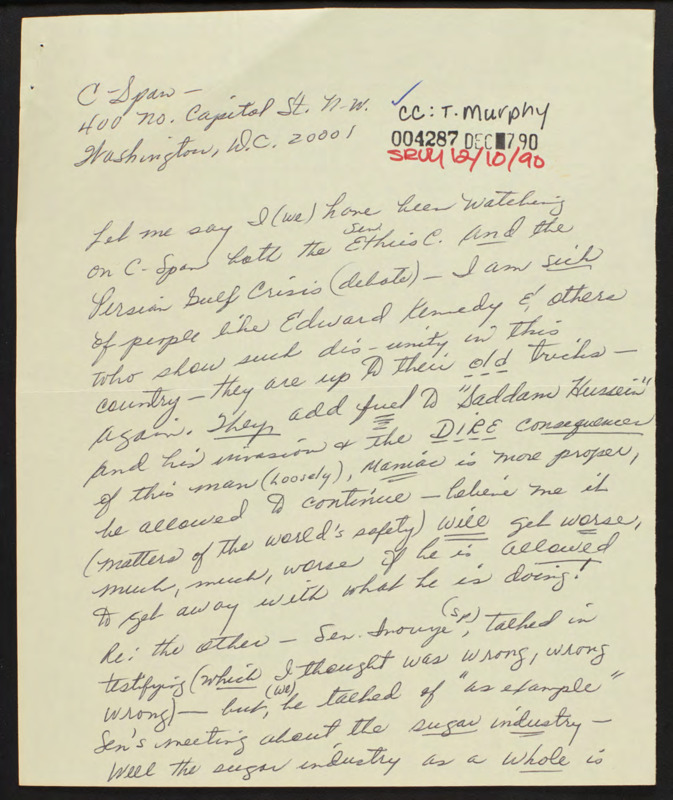 C-Span -
400 No. Capitol St. N.W.
Washington, D.C. 20001
cc: T. Murphy
004287 DEC 7 90
SRVY 12/10/90
Let me say I (we) have been watching
on C-Span both the Sen Ethics C. and the
Persian Gulf Crisis (debate) - I am sick
of people like Edward Kennedy & others
who show such dis-unity in this
country - they are up to their old tricks -
again. They add fuel to "Saddam Hussein"
and his invasion & the DIRE consequences
of this man (loosely), Maniac is more proper,
be allowed to continue - believe me it
(matters of the world's safety) will get worse,
much, much, worse if he is allowed
to get away with what he is doing!
Re: the other - Sen. Inouye (sp), talked in
testifying (which I thought was wrong, wrong
wrong) - but, (we) he talked of "as example"
Sen's meeting about the sugar industry -
Well the sugar industry as a whole is